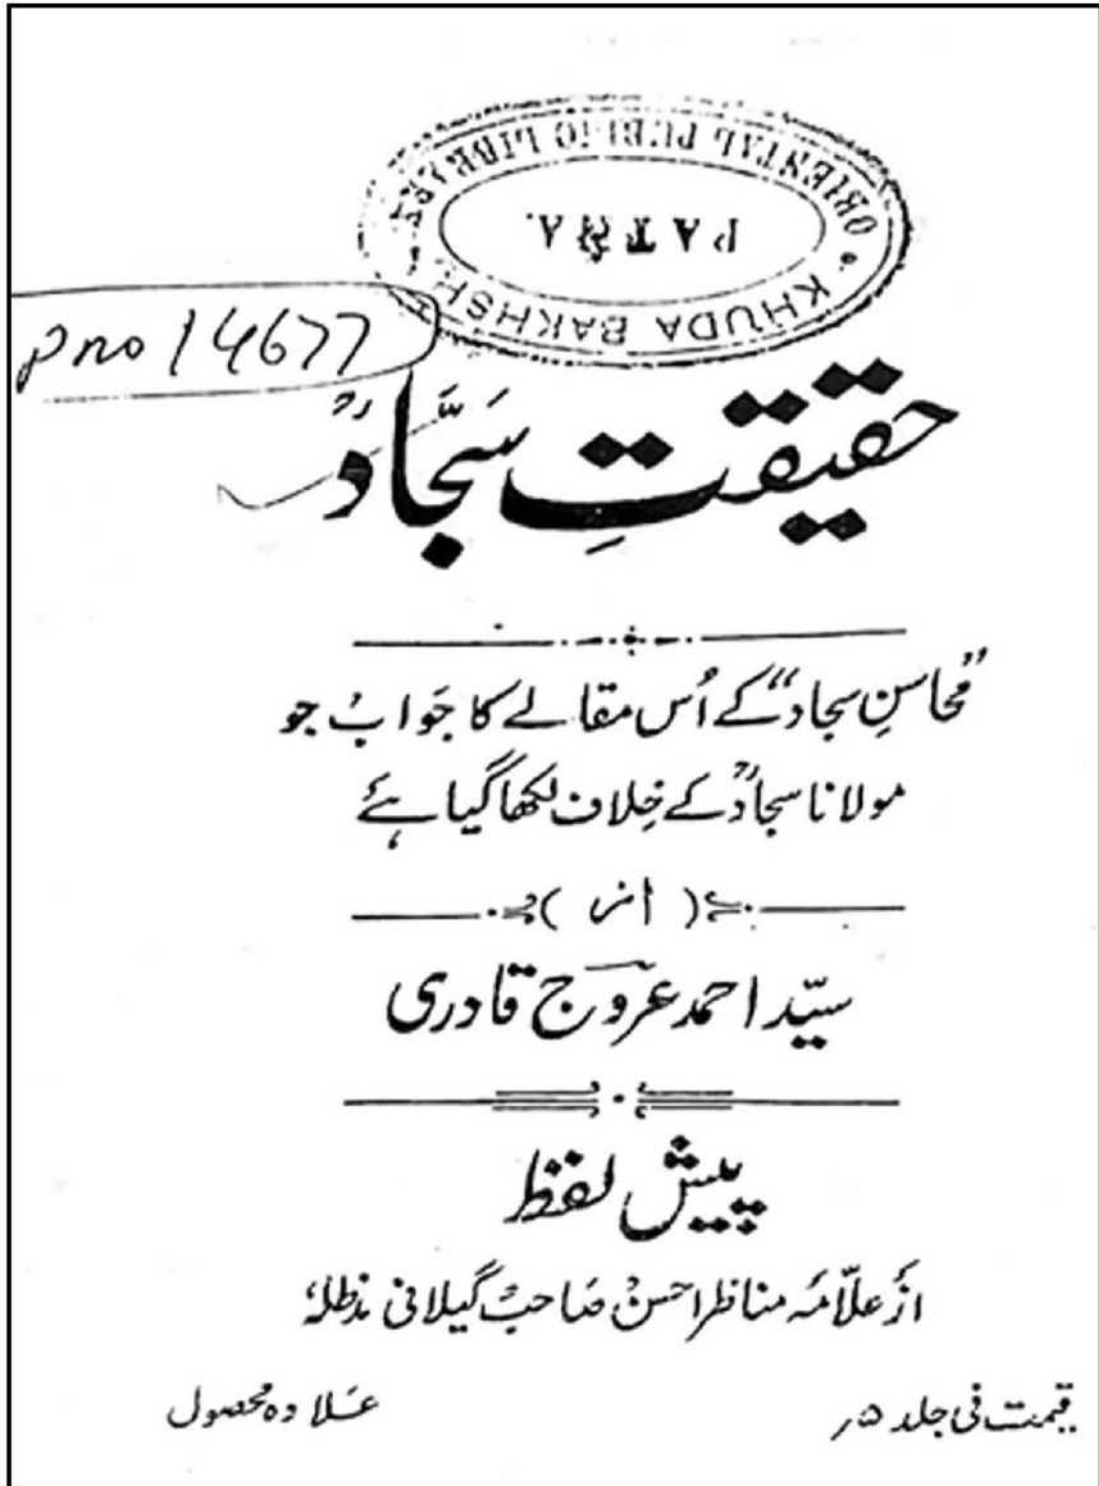 ORIENTAL PUBLIC LIBRARY
PATNA.
KHUDA BAKHSH
P no 14677
حقیقتِ سَجّادؒ
”محاسنِ سجاد“ کے اُس مقالے کا جَواب جو
مولانا سجادؒ کے خِلاف لکھا گیا ہے
( از )
سیّد احمد عروج قادری
پیش لفظ
اَز علّامَہ مناظر احسن صَاحبْ گیلانی مدظلہٗ
قیمت فی جلد ۵؍
عَلاوہ محصول